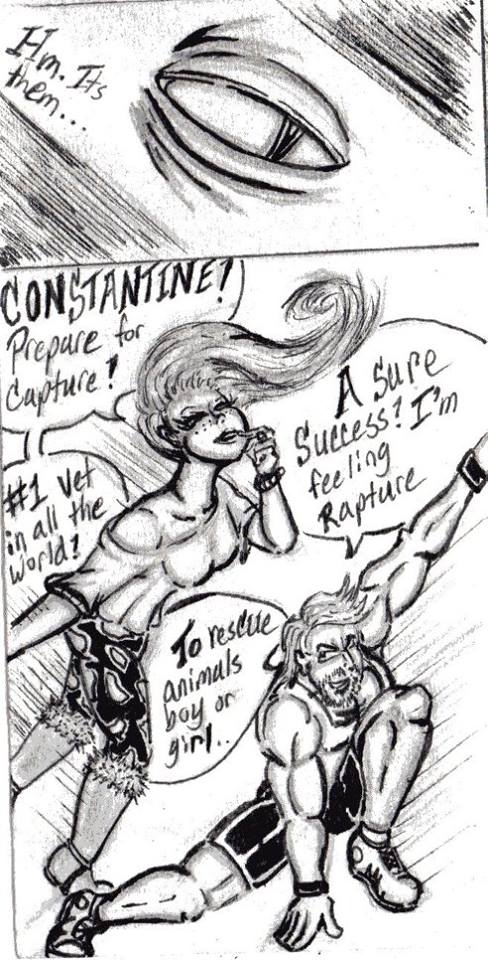 Hm. Its
them...
CONSTANTINE!
Prepare for
Capture!
A Sure
Success! I'm
feeling
Rapture
#1 Vet
in all the
world!
To rescue
animals
boy or
girl..